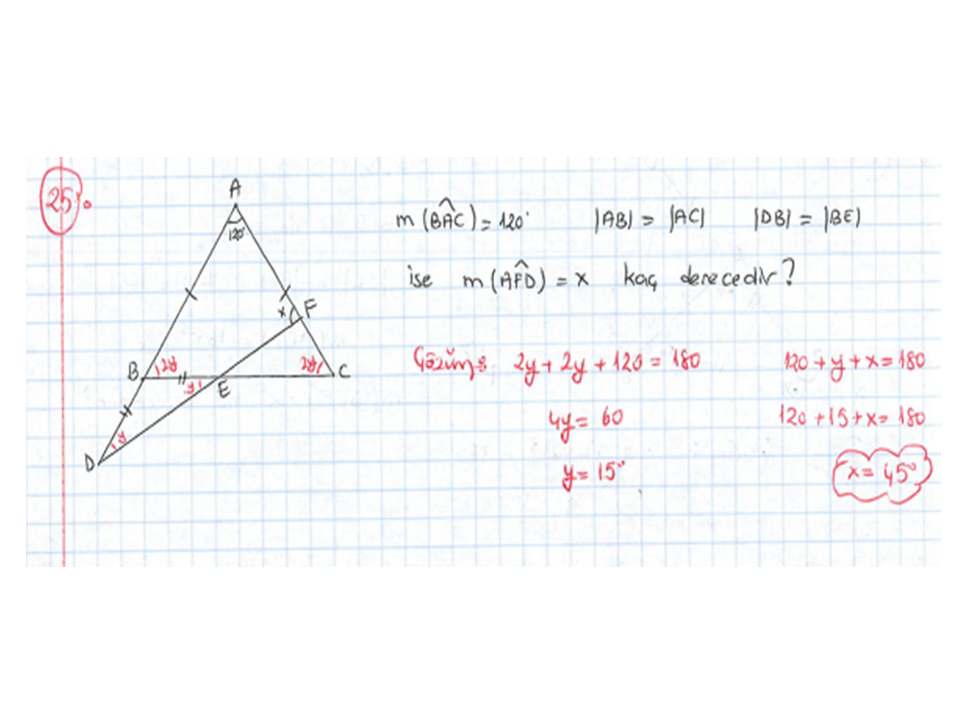 25.
A
120°
m(BAC) = 120° |AB| = |AC| |DB| = |BE|
ise m(AFD) = x kaç derecedir?
x F
B 2y y E 2y C
y
D
Çözüm: 2y + 2y + 120 = 180 120 + y + x = 180
4y = 60 120 + 15 + x = 180
y = 15° x = 45°